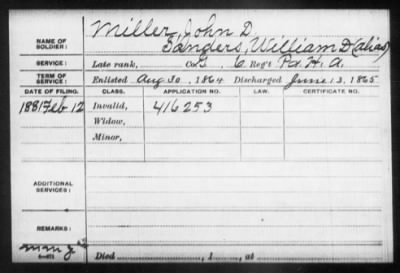 Miller, John D.
NAME OF SOLDIER: Sanders, William D (alias)
SERVICE: Late rank, Co G, 6 Reg't Pa. H. A.
TERM OF SERVICE: Enlisted Aug 30, 1864 Discharged June 13, 1865
DATE OF FILING. CLASS. APPLICATION NO. LAW. CERTIFICATE NO.
1881 Feb 12 Invalid, 416253
Widow,
Minor,
ADDITIONAL SERVICES:
REMARKS:
Died , 1 , at